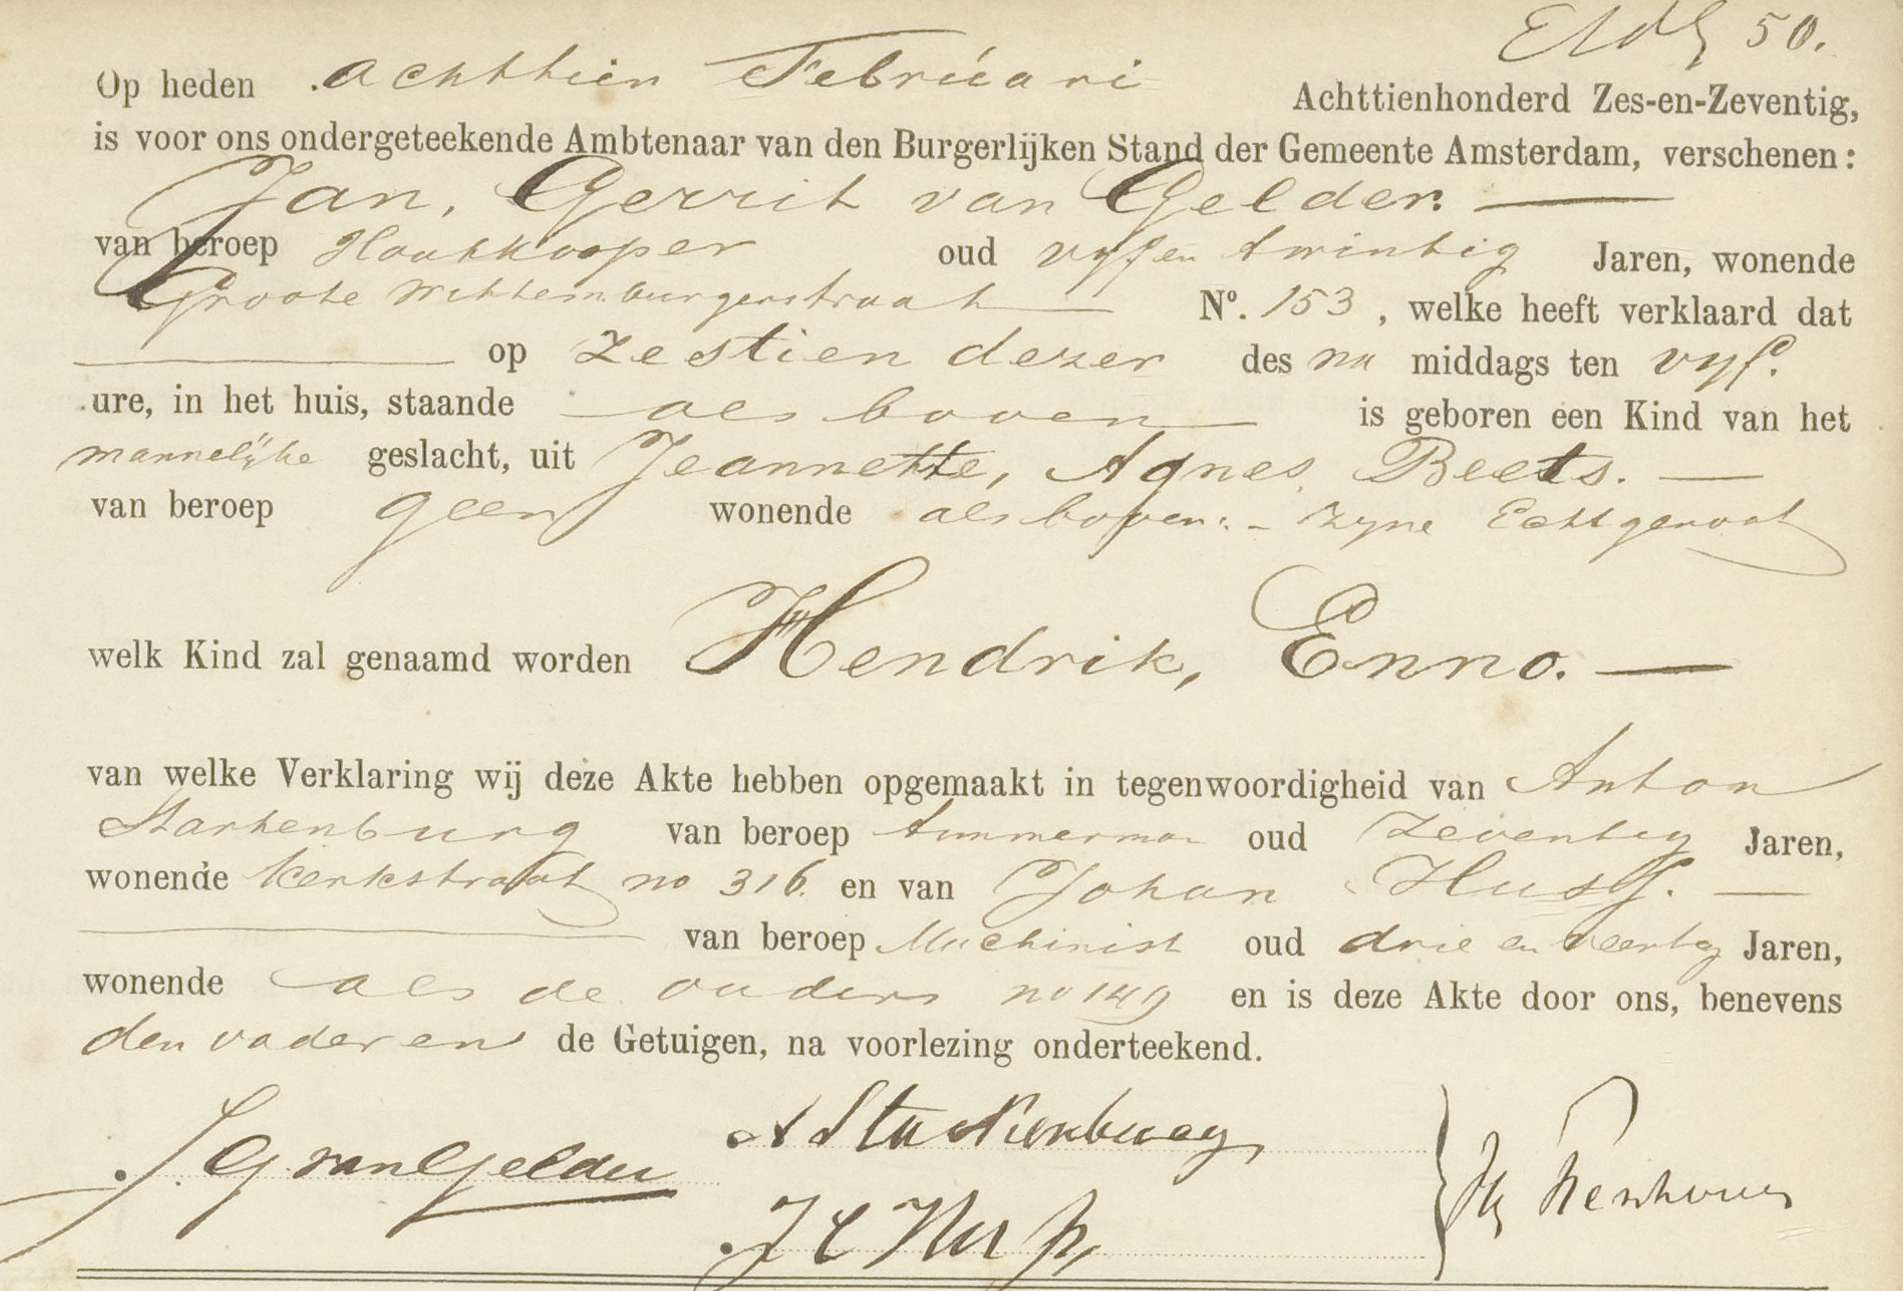 50.
Op heden achttien Februari Achttienhonderd Zes-en-Zeventig,
is voor ons ondergeteekende Ambtenaar van den Burgerlijken Stand der Gemeente Amsterdam, verschenen:
Jan, Gerrit van Gelder.
van beroep Houtkooper oud vyf en twintig Jaren, wonende
Groote Wittemburgerstraat No. 153, welke heeft verklaard dat
op zestien dezer des na middags ten vyf.
ure, in het huis, staande als boven is geboren een Kind van het
mannelijke geslacht, uit Jeannette, Agnes Beets.
van beroep geen wonende als boven. - zyne Echtgenoot
welk Kind zal genaamd worden Hendrik, Enno.
van welke Verklaring wij deze Akte hebben opgemaakt in tegenwoordigheid van Anton
Starkenburg van beroep timmerman oud zeventig Jaren,
wonende Kerkstraat no 316. en van Johan Huss.
van beroep Machinist oud drie en veertig Jaren,
wonende als de ouders no 149 en is deze Akte door ons, benevens
den vader en de Getuigen, na voorlezing onderteekend.
J G van Gelder
A Starkenburg